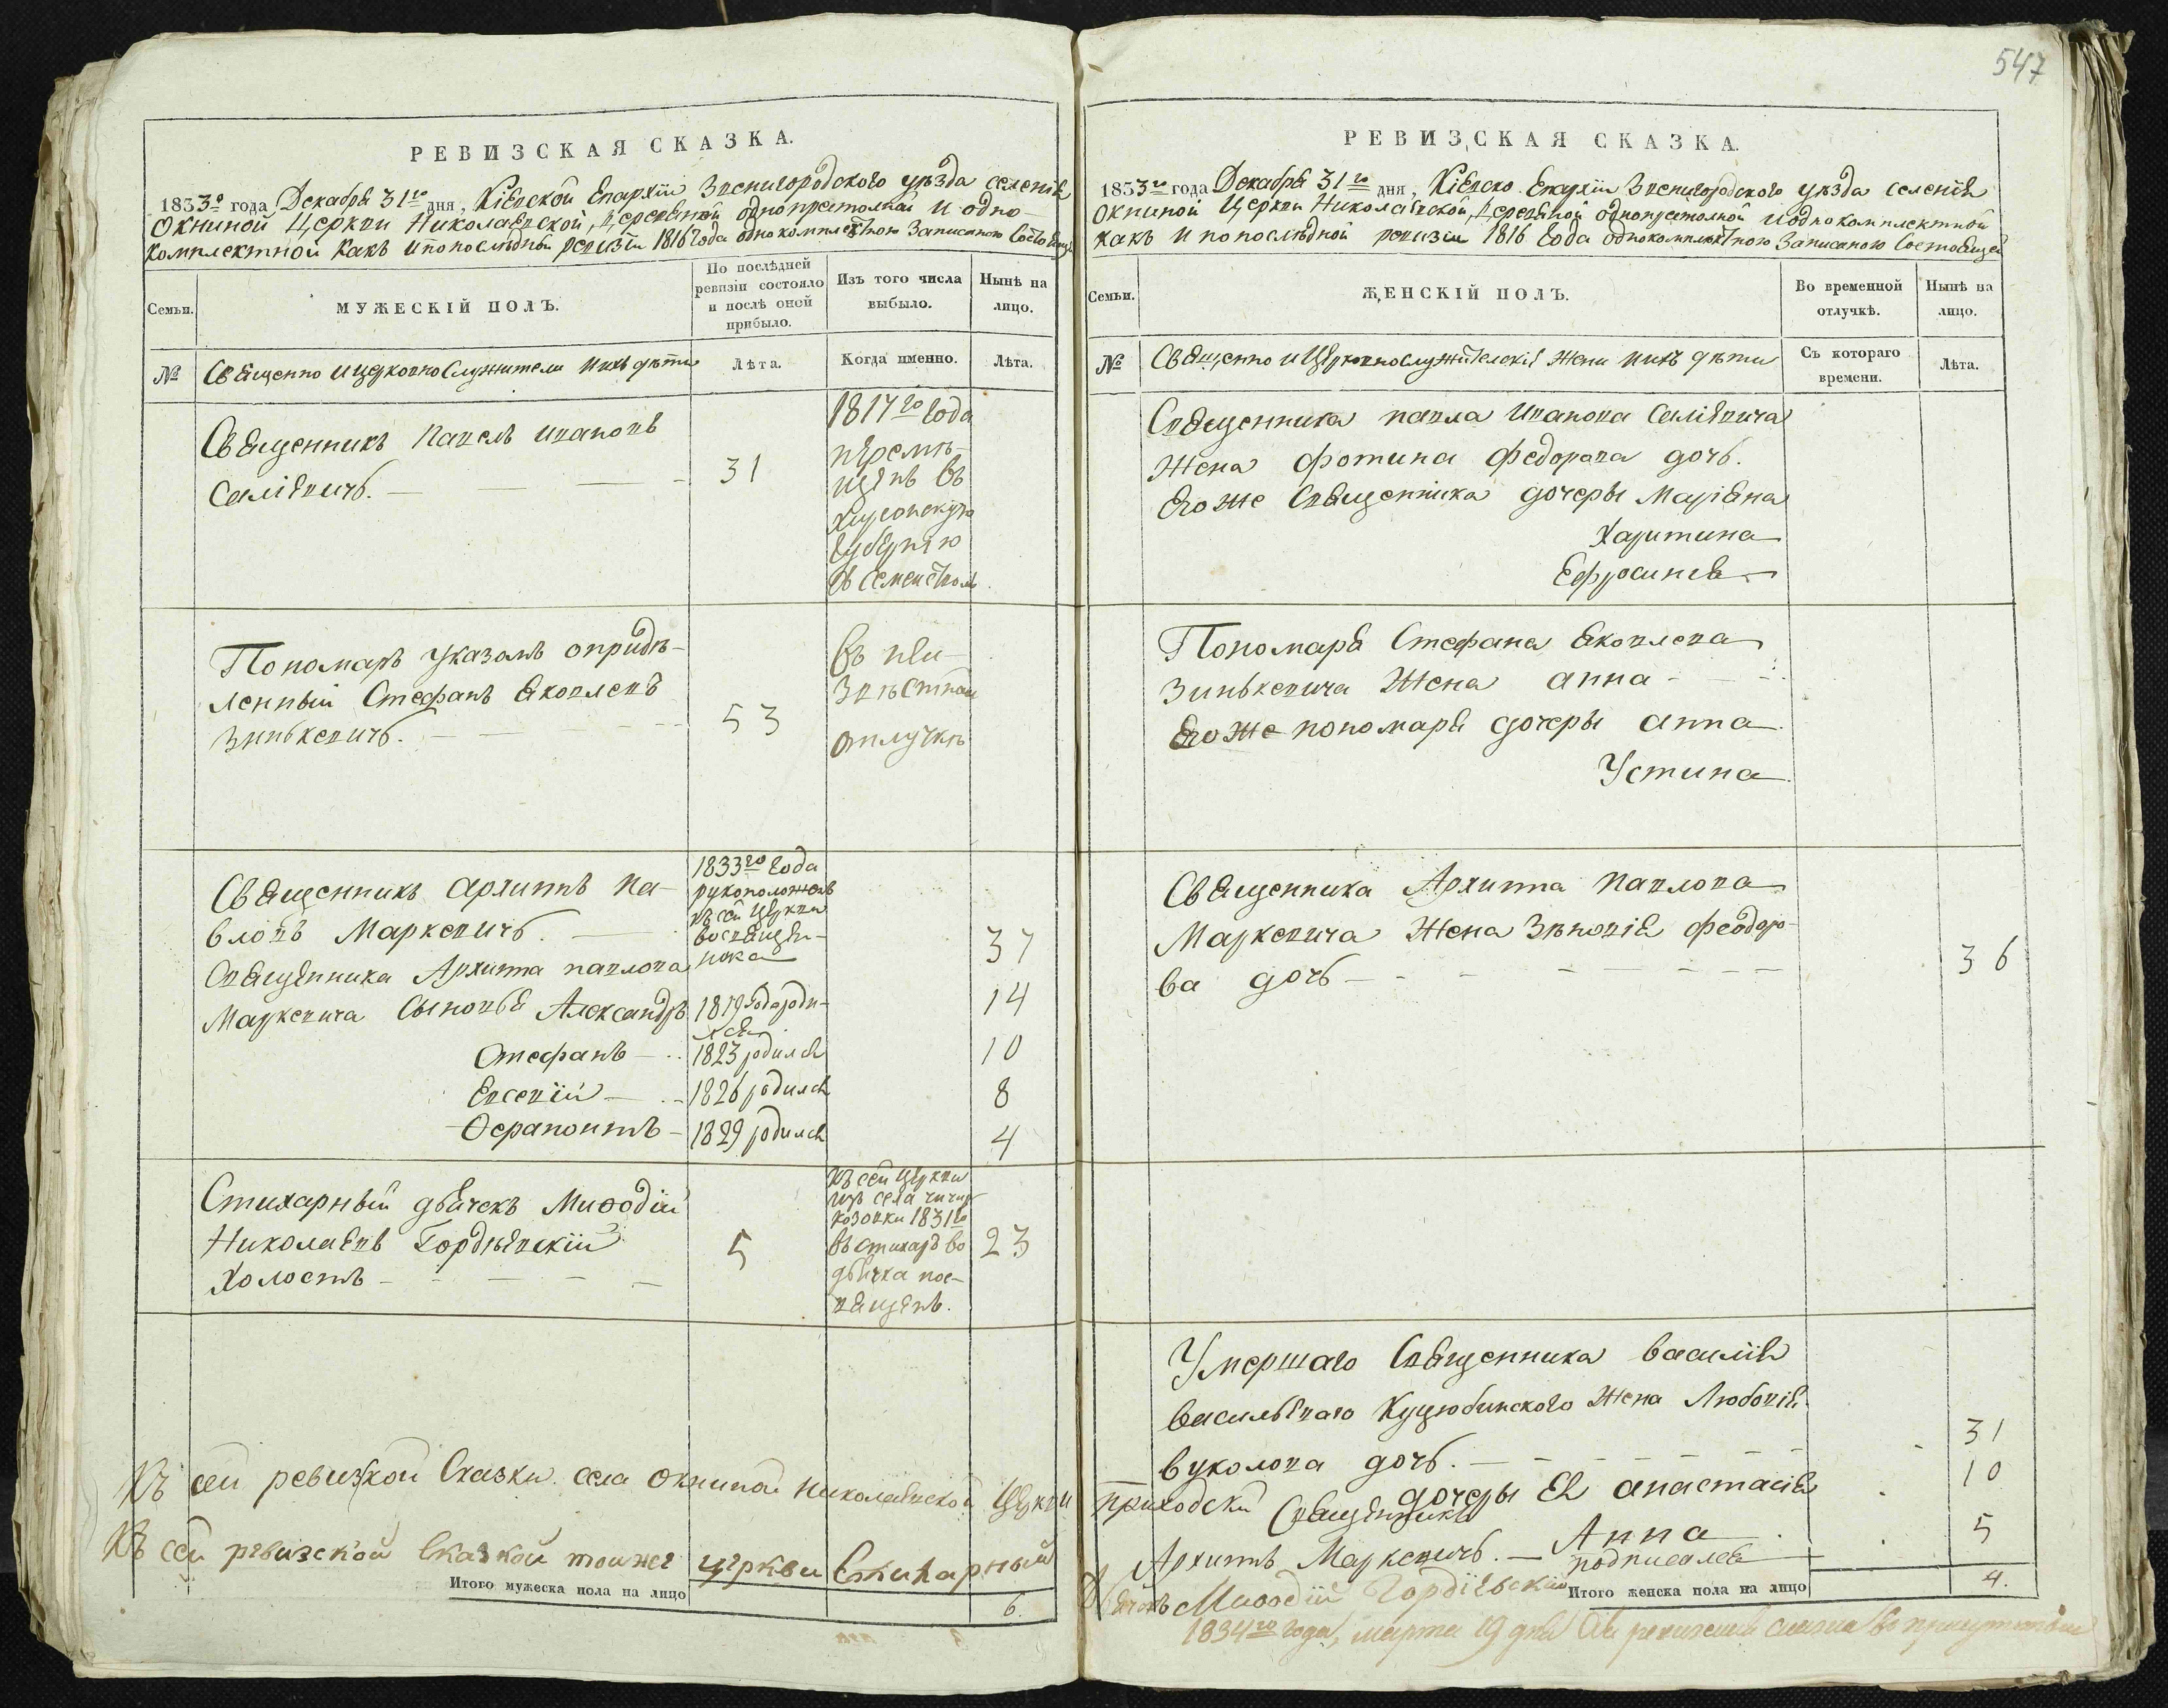 547
РЕВИЗСКАЯ СКАЗКА.
1833го года Декабря 31го дня, Кіевской Епархіи Звенигородского уѣзда селенія
Окниной Церкви Николаевской, деревяной однопрестолной и одно-
комплектной какъ и по послѣдной ревизіи 1816 года однокомплектною записаною состоящей
Семьи.
МУЖЕСКІЙ ПОЛЪ.
По послѣдней ревизіи состояло и послѣ оной прибыло.
Изъ того числа выбыло.
Нынѣ на лицо.
№
Священно и церковно Служители и ихъ дѣти
Лѣта.
Когда именно.
Лѣта.
Священникъ Павелъ Ивановъ
Саліевичъ.
31
1817го года
перемѣ-
щенъ въ
Херсонскую
губернію
въ семействомъ
Пономаръ указомъ опридѣ-
ленный Стефанъ Яковлевъ
Зинькевичъ.
53
въ неи-
звѣстной
отлучкѣ
Священникъ Архиппъ Па-
вловъ Маркевичъ.
1833го года
рукоположенъ
къ сей Церкви
во священ-
ника
37
Священника Архиппа Павлова
Маркевича Сыновья Александръ
1819 года роди-
лся
14
Стефанъ
1823 родился
10
Евсевій
1826 родился
8
Ѳерапонтъ
1829 родился
4
Стихарный дьячекъ Миѳодій
Николаевъ Гордѣевскій
холостъ
5
къ сей церкви
изъ села чичир
козовки 1831го
въ стихаръ во
дьячка пос-
вященъ.
23
Къ сей ревизкой Сказки села Окниной Николаевской Церкви
Къ сей ревизской Сказкой тоижей церкви Стихарный
Итого мужеска пола на лицо
6.
РЕВИЗСКАЯ СКАЗКА.
1833го года Декабря 31го дня, Кіевско Епархіи Звенигородского уѣзда селенія
Окниной Церкви Николаевской, деревяной однопрестолной и однокомплектной
какъ и по послѣдной ревизіи 1816 года однокомплектною записаною состоящей
Семьи.
ЖЕНСКІЙ ПОЛЪ.
Во временной отлучкѣ.
Нынѣ на лицо.
№
Священно и Церковнослужителскія Жени и ихъ дѣти
Съ котораго времени.
Лѣта.
Священника Павла Иванова Саліевича
Жена Фотина Федорова дочь.
Его же Священника дочеры Маріяна
Харитина
Ефросинія
Пономаря Стефана Яковлева
Зинькевича Жена Анна
Его же пономаря дочеры Анна
Устина
Священника Архиппа Павлова
Маркевича Жена Зѣновія Феодоро-
ва дочь
36
Умершаго Священника Василія
Васильеваго Куцюбинского Жена Любовія
Вуколова дочь.
31
дочеры Ея Анастасія
10
Анна
5
приходскій Священникъ
Архиппъ Маркевичъ. подписался
Дьячокъ Миѳодій Гордіевскій
Итого женска пола на лицо
4.
1834го года, марта 19 дня